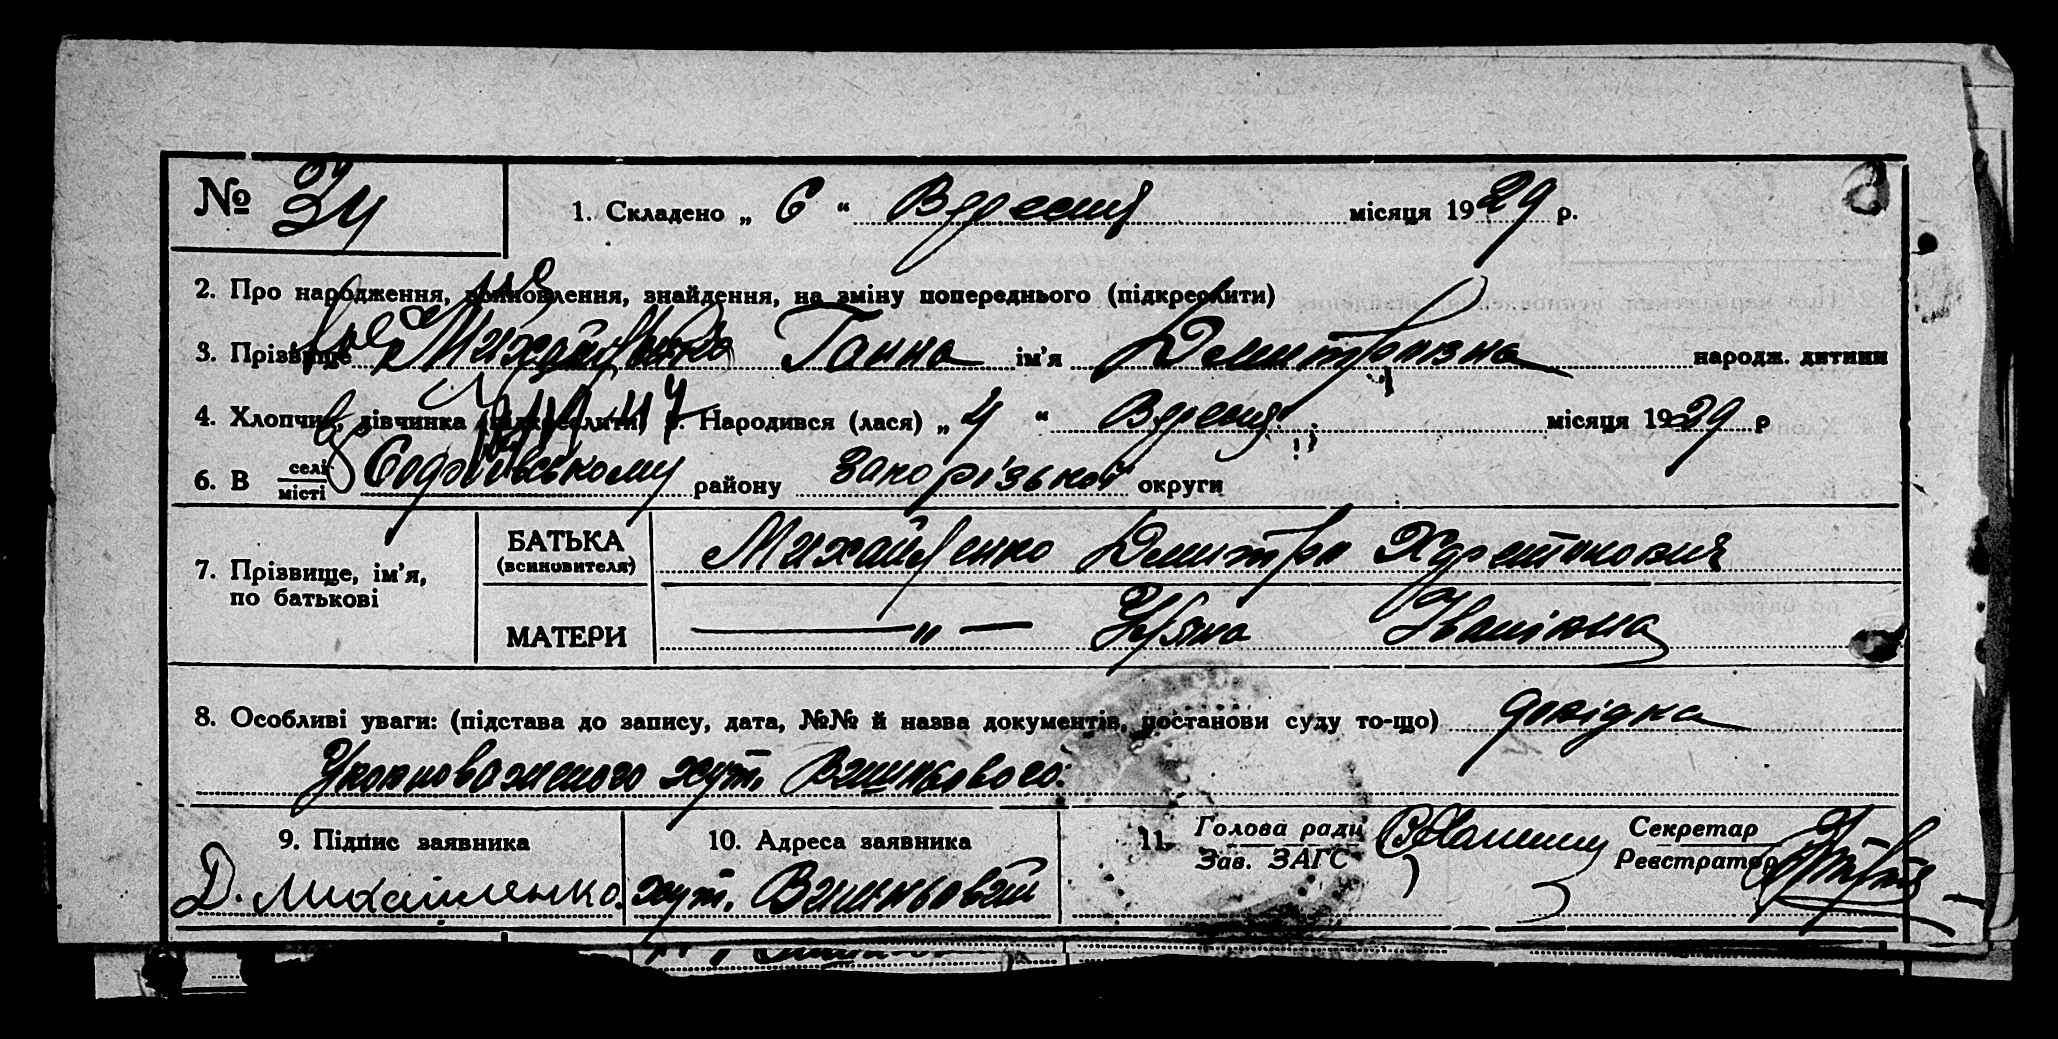 № 34
1. Складено „ 6 “ Вересня місяця 1929 р.
2. Про народження, всиновлення, знайдення, на зміну попереднього (підкреслити)
3. Прізвище Михайленко Ганна ім'я Дмитрівна народж. дитини
4. Хлопчик, дівчинка (підкреслити) 5. Народився (лася) „ 4 “ Вересня місяця 1929 р
6. В селі місті Софіївському району Запорізької округи
7. Прізвище, ім'я, по батькові
БАТЬКА (всиновителя) Михайленко Дмитро
МАТЕРИ — " — Уляна Іванівна
8. Особливі уваги: (підстава до запису, дата, №№ й назва документів, постанови суду то-що) довідка
Уповноваженого хут. Вишньового.
9. Підпис заявника
Д. Михайленко.
10. Адреса заявника
хут. Вишньовий
11. Голова ради
Зав. ЗАГС
Секретар
Реєстратор